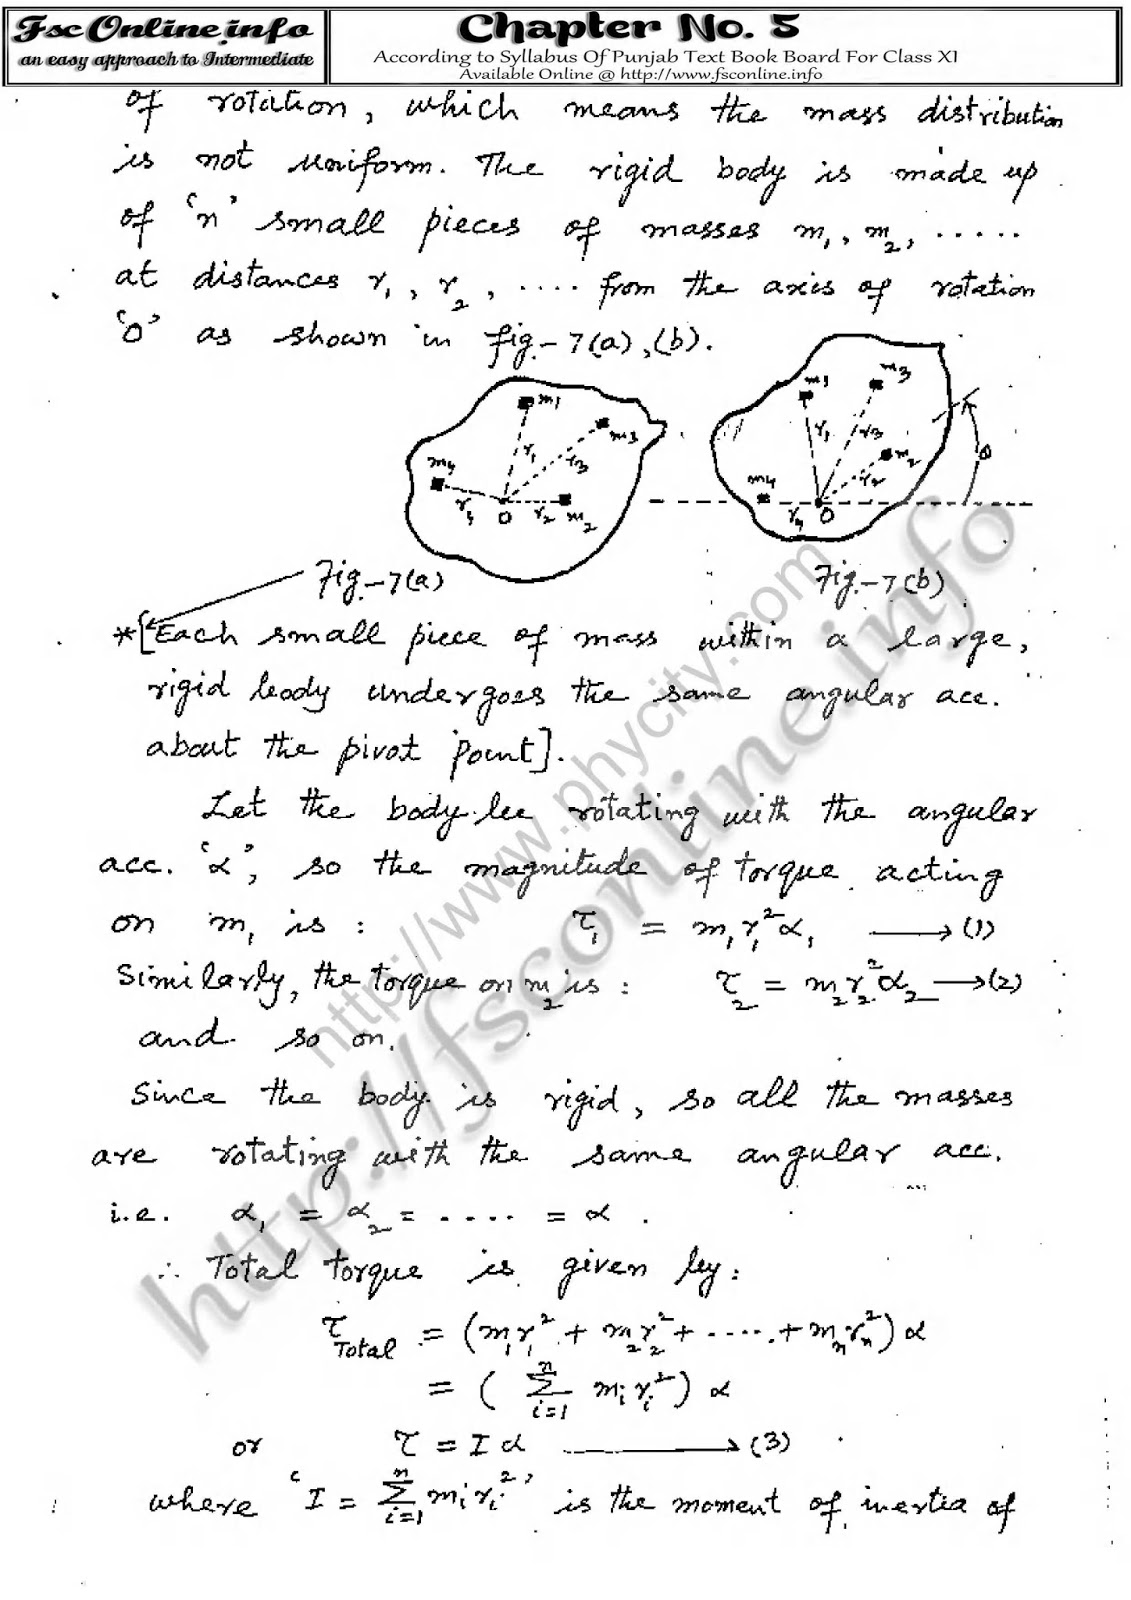 Fsc Online.info
an easy approach to Intermediate
Chapter No. 5
According to Syllabus Of Punjab Text Book Board For Class XI
Available Online @ http://www.fsconline.info
of rotation, which means the mass distribution
is not uniform. The rigid body is made up
of 'n' small pieces of masses m₁, m₂, .....
at distances r₁, r₂, .... from the axis of rotation
'O' as shown in fig.-7(a),(b).
m₁ r₁ m₃ r₃ m₄ r₄ O r₂ m₂
m₁ m₃ r₁ r₃ m₂ r₂ m₄ r₄ O θ
Fig.-7(a)
Fig.-7(b)
*[Each small piece of mass within a large,
rigid body undergoes the same angular acc.
about the pivot point].
Let the body be rotating with the angular
acc. 'α', so the magnitude of torque acting
on m₁ is : τ₁ = m₁r₁²α₁ → (1)
Similarly, the torque on m₂ is : τ₂ = m₂r₂²α₂ → (2)
and so on.
Since the body is rigid, so all the masses
are rotating with the same angular acc.
i.e. α₁ = α₂ = ..... = α .
∴ Total torque is given by:
τ Total = (m₁r₁² + m₂r₂² + ..... + mₙrₙ²) α
= ( ∑ᵢ₌₁ⁿ mᵢrᵢ² ) α
or τ = I α → (3)
where 'I = ∑ᵢ₌₁ⁿ mᵢrᵢ²' is the moment of inertia of
http://www.phycity.com
http://fsconline.info